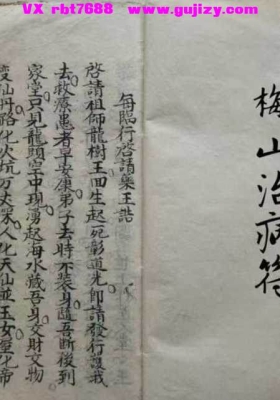 VX rbt7688  www.gujizy.com
梅山治病符
每臨行啓請藥王誥
啓請祖師龍樹王回生起死彰道先即請發行護我
去救療患者早安康弟子去時不裝身隨吾断後到
家堂只見龍頭空中現湧起海水藏吾身交財交物
化火坑万丈深人化天仙並玉女變化帝